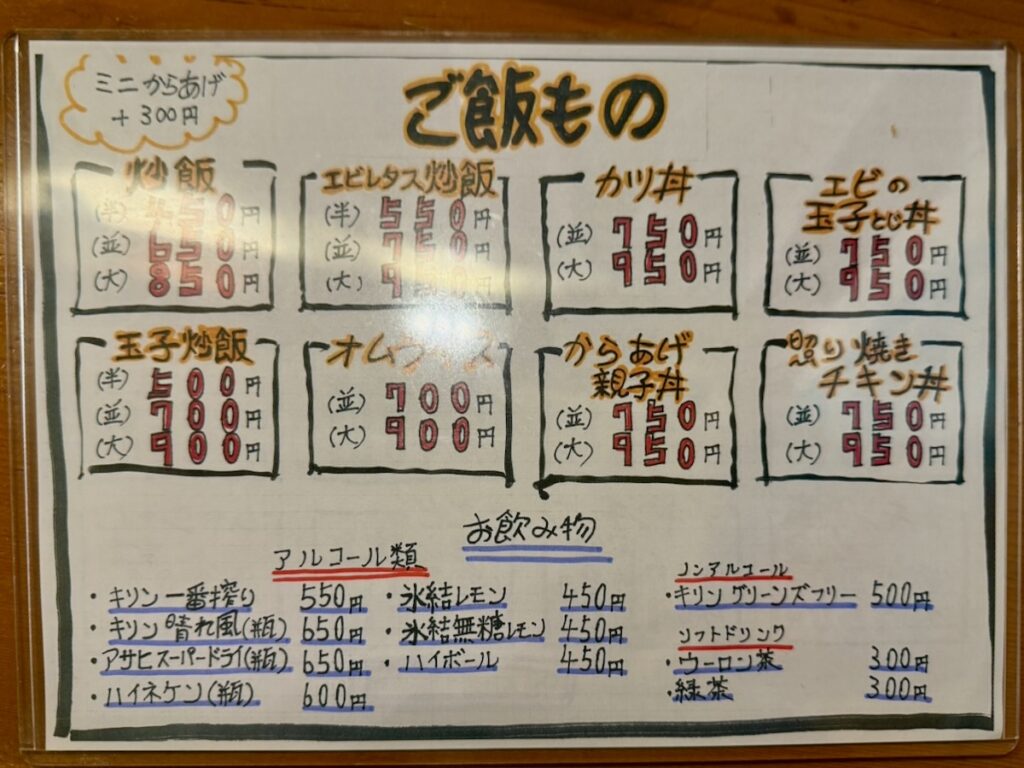 ミニからあげ
+300円
ご飯もの
炒飯
(半) 450円
(並) 650円
(大) 850円
エビレタス炒飯
(半) 550円
(並) 750円
(大) 円
カツ丼
(並) 750円
(大) 950円
エビの
玉子とじ丼
(並) 750円
(大) 950円
玉子炒飯
(半) 500円
(並) 700円
(大) 900円
オムライス
(並) 700円
(大) 900円
からあげ
親子丼
(並) 750円
(大) 950円
照り焼き
チキン丼
(並) 750円
(大) 950円
お飲み物
アルコール類
・キリン一番搾り 550円
・キリン晴れ風(瓶) 650円
・アサヒスーパードライ(瓶) 650円
・ハイネケン(瓶) 600円
・氷結レモン 450円
・氷結無糖レモン 450円
・ハイボール 450円
ノンアルコール
・キリングリーンズフリー 500円
ソフトドリンク
・ウーロン茶 300円
・緑茶 300円